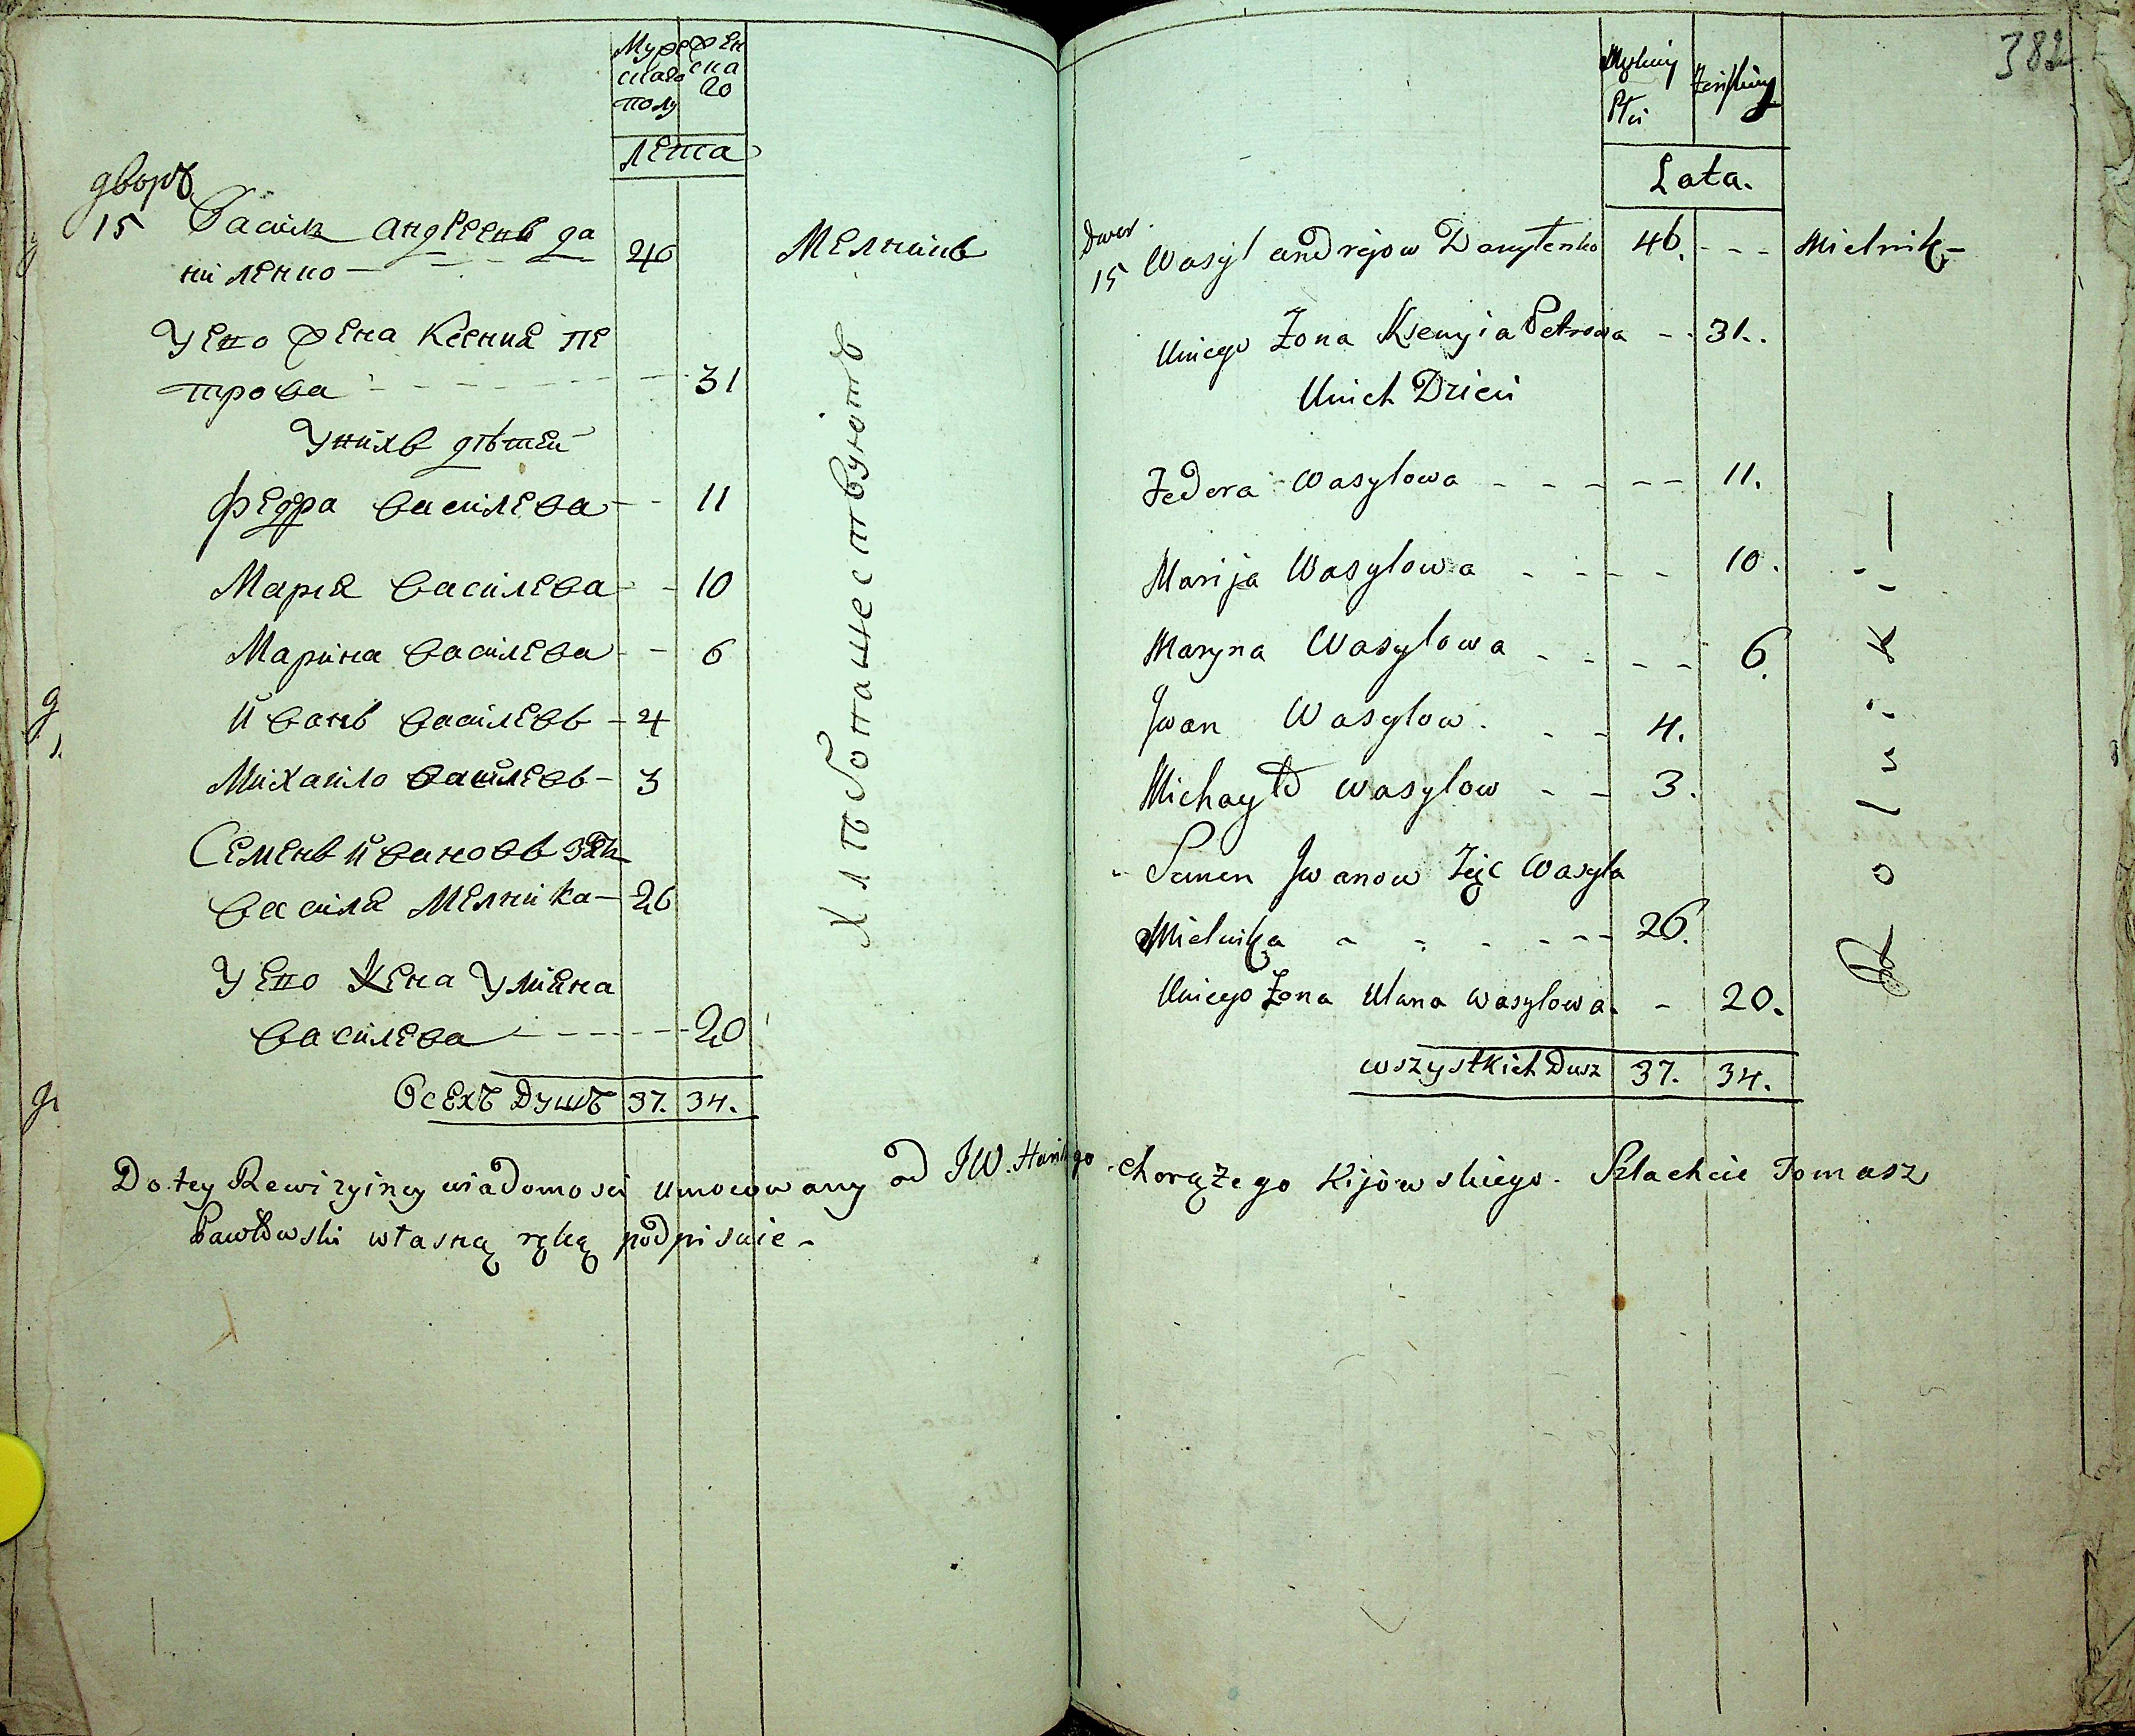 Мужескаго полу
женскаго
Лета
дворъ
15 Васил андреевъ да
ниленко 46 Мелникъ
Унего жена Ксения пе
трова 31
Унихъ дѣтей
Федора василева 11
Мария василева 10
Марина василева 6
Иванъ василевъ 4
Михаило василевъ 3
Семенъ Ивановъ зять
василя Мелника 26
Унего жена Улияна
василева 20
Всехъ Душъ 37. 34.
Хлѣбопашествуютъ
382
Męskiej Płci
Żeńskiej
Lata.
Dwor.
15 Wasyl andrejow Danylenko 46. Mielnik
Uniego Żona Ksenyia Petrowa 31.
Unich Dzieci
Fedora Wasylowa 11.
Marija Wasylowa 10.
Maryna Wasylowa 6.
Jwan Wasylow. 4.
Michayło wasylow 3.
Semen Jwanow Zięc Wasyla
Mielnika 26.
Uniego Żona Ulana wasylowa. 20.
wszystkich Dusz 37. 34.
Rolniki
Do tey Rewizyiney wiadomosci Umocowany od JW. chorążego Kijowskiego. Szlachcic Tomasz
Pawłowski własną ręką podpisuie